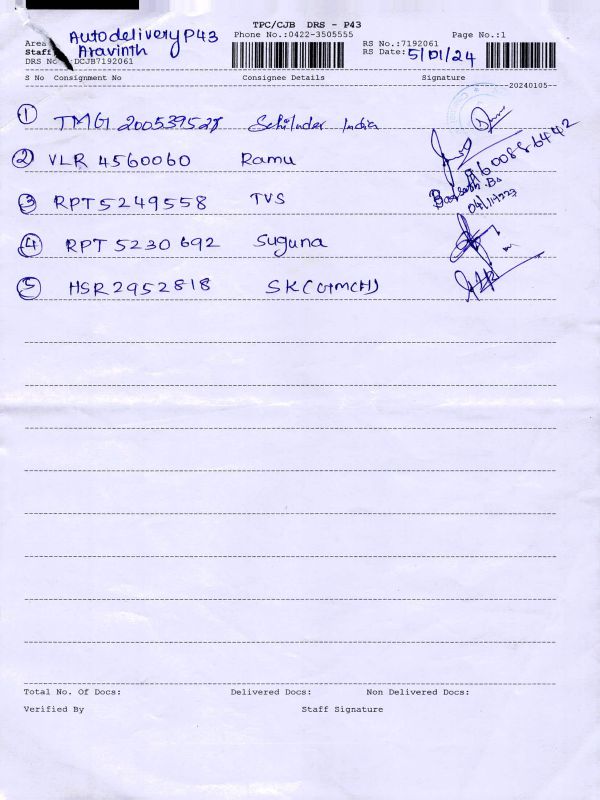 TPC/CJB DRS - P43
Autodelivery P43
Phone No.:0422-3505555
Page No.:1
Area
Aravinth
RS No.:7192061
Staff
RS Date: 5/01/24
DRS No :DCJB7192061
S No Consignment No Consignee Details Signature
20240105
1 TMG1 200539527 Schilnder India
2 VLR 4560060 Ramu
3 RPT5249558 TVS
4 RPT 5230692 Suguna
5 HSR2952818
Total No. Of Docs: Delivered Docs: Non Delivered Docs:
Verified By Staff Signature